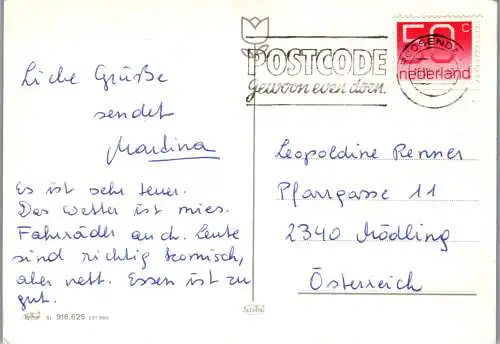 Liebe Grüße
sendet
Martina
Es ist sehr teuer.
Das Wetter ist mies.
Fahrräder auch. Leute
sind richtig komisch,
aber nett. Essen ist zu
gut.
51 916.625
POSTCODE
Gewoon even doen.
50 c
nederland
Leopoldine Renner
Pfarrgasse 11
2340 Mödling
Österreich